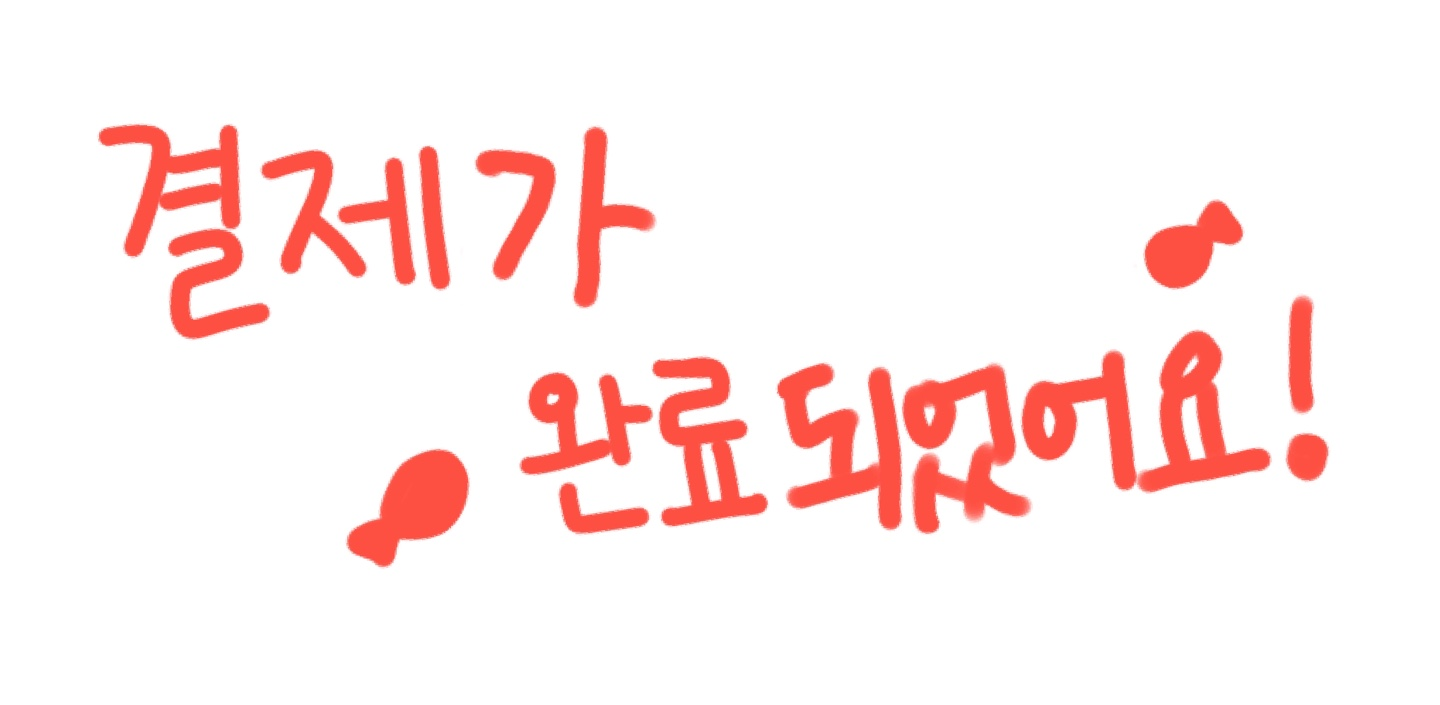 결제가
완료되었어요!